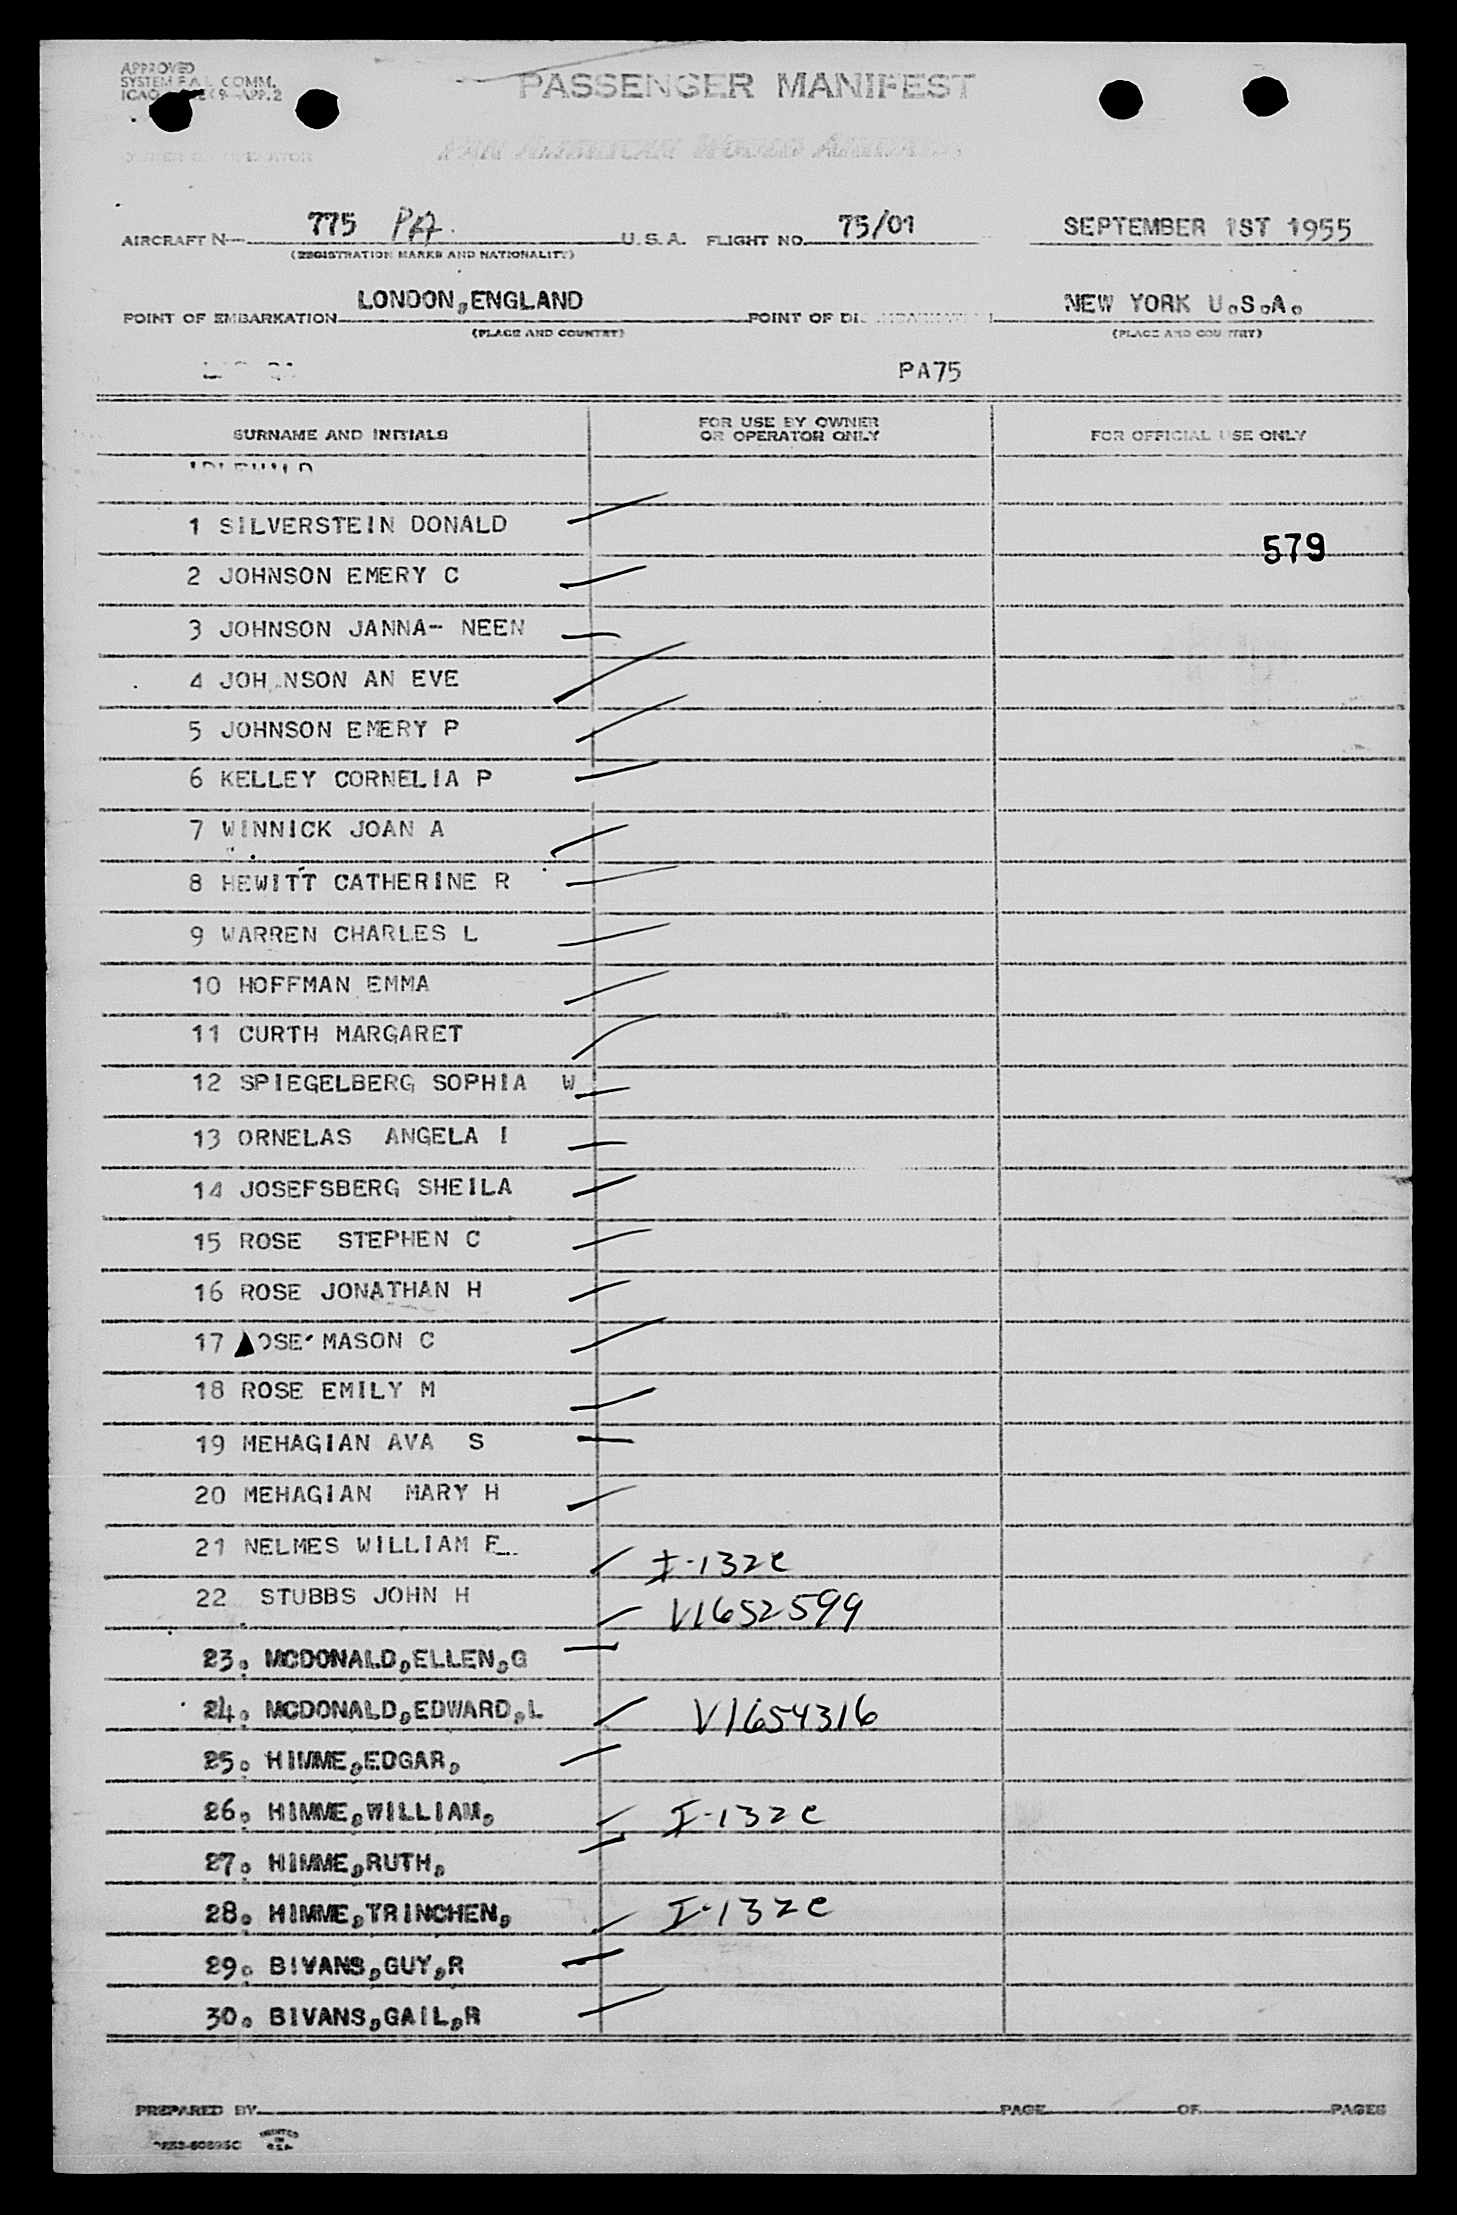 APPROVED
SYSTEM F.A.L. COMM.
ICAO 9-APP.2
PASSENGER MANIFEST
OWNER OR OPERATOR PAN AMERICAN WORLD AIRWAYS,
AIRCRAFT N- 775 PA. U. S. A. FLIGHT NO. 75/01 SEPTEMBER 1ST 1955
(REGISTRATION MARKS AND NATIONALITY)
POINT OF EMBARKATION LONDON,ENGLAND POINT OF DISEMBARKATION NEW YORK U.S.A.
(PLACE AND COUNTRY) (PLACE AND COUNTRY)
PA75
SURNAME AND INITIALS FOR USE BY OWNER OR OPERATOR ONLY FOR OFFICIAL USE ONLY
IDLEWILD
1 SILVERSTEIN DONALD
579
2 JOHNSON EMERY C
3 JOHNSON JANNA- NEEN
4 JOH NSON AN EVE
5 JOHNSON EMERY P
6 KELLEY CORNELIA P
7 WINNICK JOAN A
8 HEWITT CATHERINE R
9 WARREN CHARLES L
10 HOFFMAN EMMA
11 CURTH MARGARET
12 SPIEGELBERG SOPHIA W
13 ORNELAS ANGELA I
14 JOSEFSBERG SHEILA
15 ROSE STEPHEN C
16 ROSE JONATHAN H
17 ROSE MASON C
18 ROSE EMILY M
19 MEHAGIAN AVA S
20 MEHAGIAN MARY H
21 NELMES WILLIAM F I-132c
22 STUBBS JOHN H V1652599
23. MCDONALD,ELLEN,G
24. MCDONALD,EDWARD,L V1654316
25. HIMME,EDGAR,
26. HIMME,WILLIAM, I-132c
27. HIMME,RUTH,
28. HIMME,TRINCHEN, I-132c
29. BIVANS,GUY,R
30. BIVANS,GAIL,R
PREPARED BY PAGE OF PAGES
PRINTED IN U.S.A.